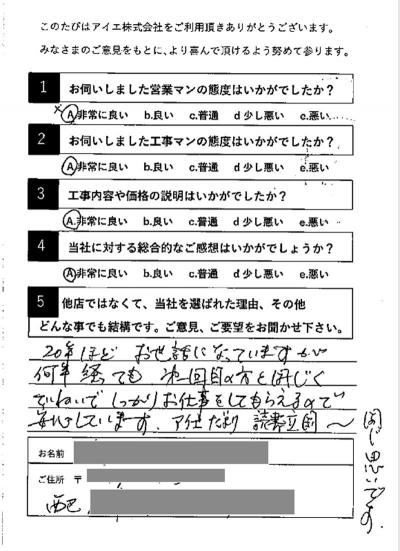 このたびはアイエ株式会社をご利用頂きありがとうございます。
みなさまのご意見をもとに、より喜んで頂けるよう努めて参ります。
1 お伺いしました営業マンの態度はいかがでしたか？
A非常に良い b.良い c.普通 d少し悪い e.悪い
2 お伺いしました工事マンの態度はいかがでしたか？
A非常に良い b.良い c.普通 d少し悪い e.悪い
3 工事内容や価格の説明はいかがでしたか？
A.非常に良い b.良い c.普通 d少し悪い e.悪い
4 当社に対する総合的なご感想はいかがでしょうか？
A非常に良い b.良い c.普通 d少し悪い e.悪い
5 他店ではなくて、当社を選ばれた理由、その他
どんな事でも結構です。ご意見、ご要望をお聞かせ下さい。
20年ほど お世話になっていますが
何年経ても 第1回目の方と同じく
ていねいで しっかりお仕事をしてもらえるので
安心しています。 だより 読書
同じ思いです。
お名前
ご住所 〒
西